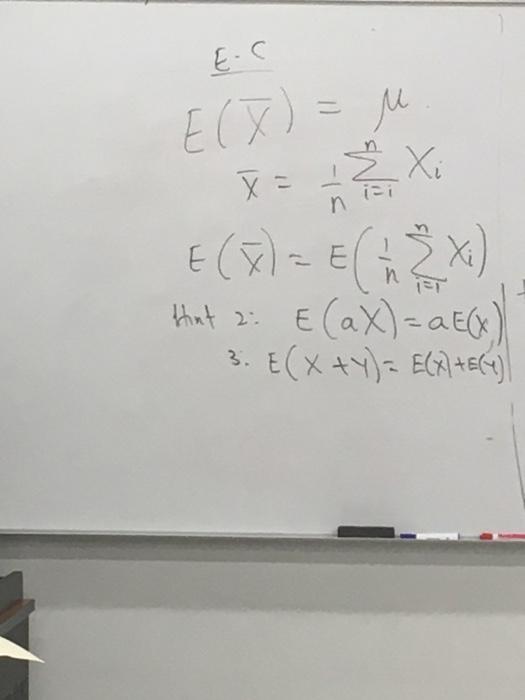 E.C
E(X̄) = μ.
x̄ = 1/n ∑_{i=i}^{n} Xi
E(X̄) = E(1/n ∑_{i=1}^{n} Xi)
Hint 2: E(aX) = aE(X)
3. E(X+Y) = E(X)+E(Y)